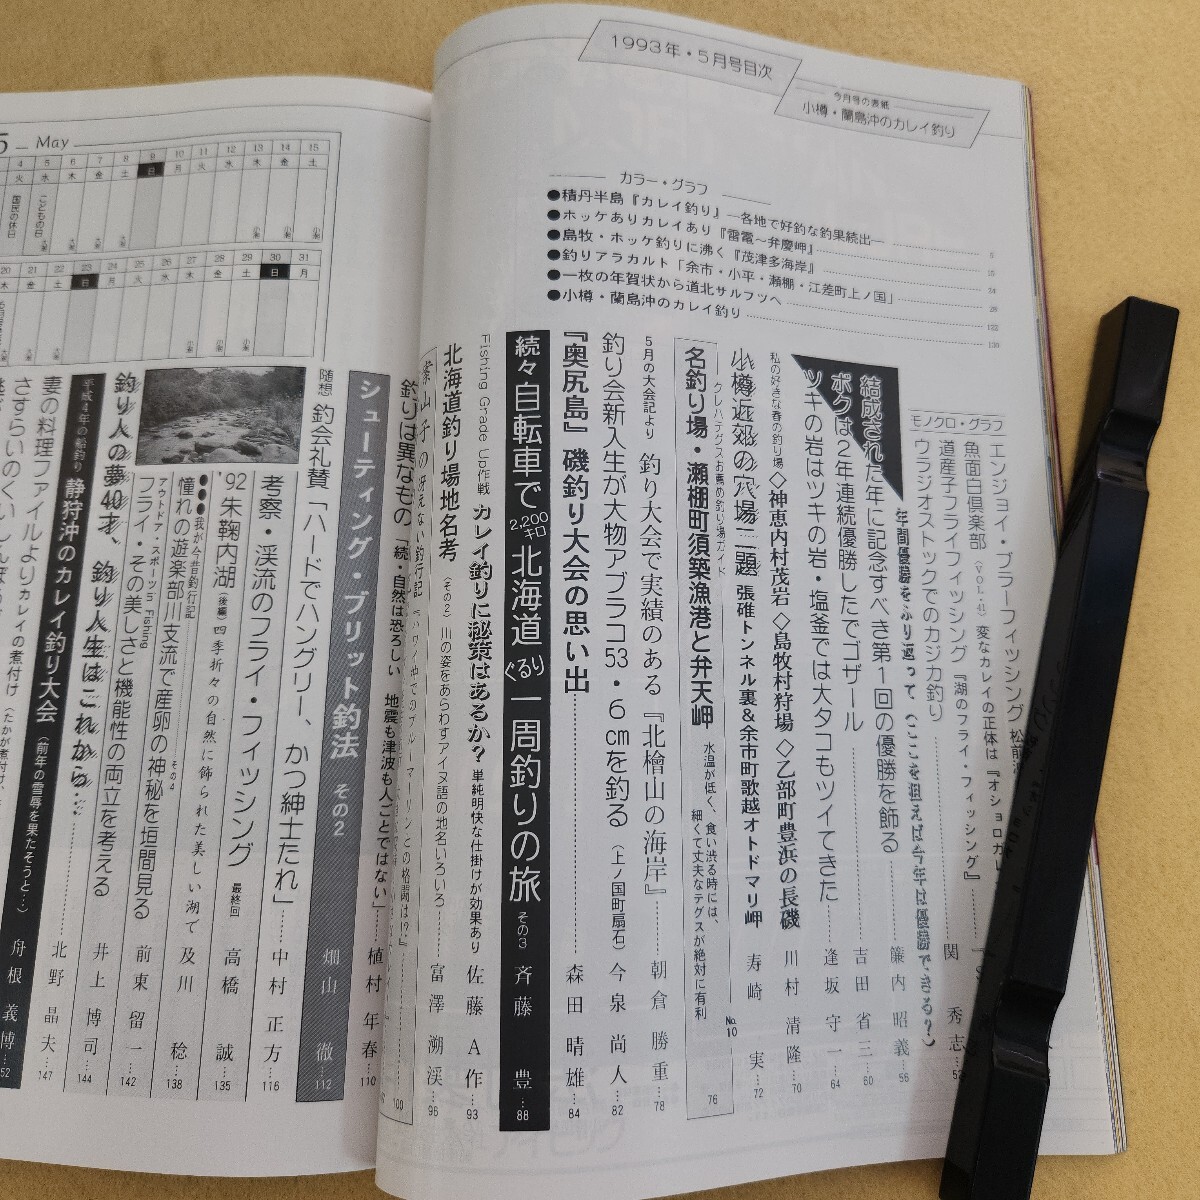 1993年・5月号目次
今月号の表紙
小樽・蘭島沖のカレイ釣り
カラー・グラフ
●積丹半島『カレイ釣り』―各地で好釣な釣果続出―
●ホッケありカレイあり『雷電〜弁慶岬』
●島牧・ホッケ釣りに沸く『茂津多海岸』
●釣りアラカルト「余市・小平・瀬棚・江差町上ノ国」
●一枚の年賀状から道北サルフツへ 122
●小樽・蘭島沖のカレイ釣り 130
モノクロ・グラフ
エンジョイ・ブラーフィッシング 松前
魚面白倶楽部〈VOL.41〉変なカレイの正体は『オショロカレ
道産子フライフィッシング『湖のフライ・フィッシング』
ウラジオストックでのカジカ釣り 関 秀志
年間優勝をふり返って（ここを狙えば今年は優勝できる？）
結成された年に記念すべき第1回の優勝を飾る 簾内昭義 56
ボクは2年連続優勝したでゴザール 吉田省三 60
ツキの岩はツキの岩・塩釜では大タコもツイてきた 逢坂守一 64
私の好きな春の釣り場 ◇神恵内村茂岩 ◇島牧村狩場 ◇乙部町豊浜の長磯 川村清隆 70
小樽近郊の穴場二題 張碓トンネル裏＆余市町歌越オトドマリ岬 寿崎 実 72
クレハテグスお薦め釣り場ガイド
名釣り場・瀬棚町須築漁港と弁天岬 水温が低く、食い渋る時には、細くて丈夫なテグスが絶対に有利 No.10 76
5月の大会記より 釣り大会で実績のある『北檜山の海岸』 朝倉勝重 78
釣り会新入生が大物アブラコ53・6cmを釣る（上ノ国町扇石） 今泉尚人 82
『奥尻島』磯釣り大会の思い出 森田晴雄 84
続々 自転車で2,200キロ北海道ぐるり一周釣りの旅 その3 斉藤 豊 88
Fishing Grade Up作戦 カレイ釣りに秘策はあるか？ 単純明快な仕掛けが効果あり 佐藤A作 93
北海道釣り場地名考（その2）川の姿をあらわすアイヌ語の地名いろいろ 富澤溯渓 96
案山子の冴えない釣行記 100
釣りは異なもの「続・自然は恐ろしい 地震も津波も人ごとではない」 植村年春 110
シューティング・ブリット釣法 その2 畑山 徹 112
随想 釣会礼賛「ハードでハングリー、かつ紳士たれ」 中村正方 116
考察・渓流のフライ・フィッシング 最終回 高橋 誠 135
'92朱鞠内湖（後編）四季折々の自然に飾られた美しい湖で 及川 稔 138
●●●我が今昔釣行記
憧れの遊楽部川支流で産卵の神秘を垣間見る その4 前東留一 142
アウトドア・スポーツ in Fishing
フライ・その美しさと機能性の両立を考える 井上博司 144
釣り人の夢40才、釣り人生はこれから…
平成4年の船釣り 静狩沖のカレイ釣り大会（前年の雪辱を果たそうと…）
妻の料理ファイルより 北野晶夫 147
カレイの煮付け（たかが煮付け、
舟根義博 52
5 May
4 5 6 7 8 9 10 11 12 13 14 15
火 水 木 金 土 日 月 火 水 木 金 土
国民の休日
こどもの日
20 21 22 23 24 25 26 27 28 29 30 31